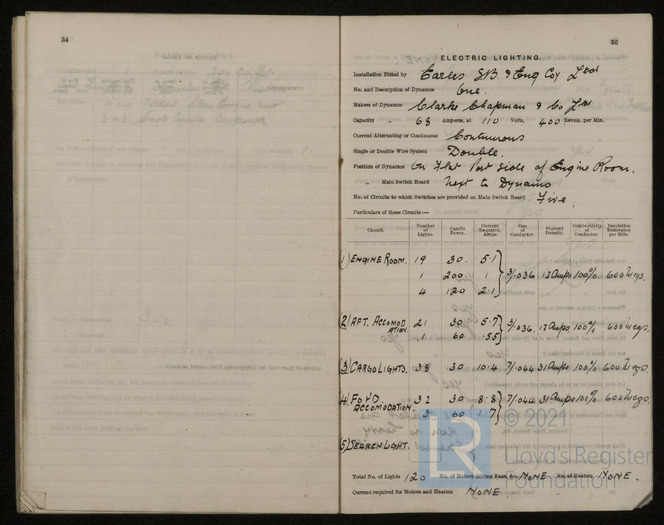 34
35
ELECTRIC LIGHTING.
Installation Fitted by Earles S.B & Eng Coy Ltd
No. and Description of Dynamos One.
Makers of Dynamos Clarke Chapman & Co Ltd
Capacity 68 Amperes, at 110 Volts, 400 Revols. per Min.
Current Alternating or Continuous Continuous
Single or Double Wire System Double.
Position of Dynamos On Flat Port side of Engine Room.
„ Main Switch Board next to Dynamo
No. of Circuits to which Switches are provided on Main Switch Board Five.
Particulars of these Circuits:—
Circuit. Number of Lights. Candle Power. Current Required. Amps. Size of Conductor. Current Density. Conductivity of Conductor. Insulation Resistance per Mile.
(1) ENGINE ROOM. 19 30. 5.1
1 200 1 3/.036 12 Amps 100% 600 Megs.
4 120 2.1
(2) AFT. ACCOMOD 21 30 5.7 3/.036. 12 Amps 100% 600 Megs.
ATION. 1 60 .55
(3) CARGO LIGHTS. 38 30 10.4 7/.044 31 Amps 100% 600 Megs.
(4) FOR'D 32 30 8.8 7/.044 31 Amps 100% 600 Megs.
ACCOMODATION. 3 60 1.7
(5) SEARCH LIGHT.
Total No. of Lights 120 No. of Motors driving Fans, &c. NONE No. of Heaters NONE.
Current required for Motors and Heaters NONE
© 2021
LR
Lloyd's Register
Foundation